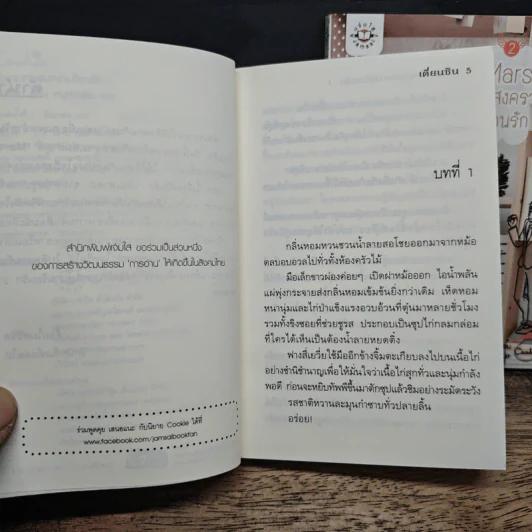 สำนักพิมพ์แจ่มใส ขอร่วมเป็นส่วนหนึ่ง
ของการสร้างวัฒนธรรม 'การอ่าน' ให้เกิดขึ้นในสังคมไทย
ร่วมพูดคุย เสนอแนะ กับนิยาย Cookie ได้ที่
www.facebook.com/jamsaibookfan
เตี๋ยนซิน 5
บทที่ 1
กลิ่นหอมหวนชวนน้ำลายสอโชยออกมาจากหม้อ
ตลบอบอวลไปทั่วทั้งห้องครัวไม้
มือเล็กขาวผ่องค่อยๆ เปิดฝาหม้อออก ไอน้ำพลัน
แผ่พุ่งกระจายส่งกลิ่นหอมเข้มข้นยิ่งกว่าเดิม เห็ดหอม
หนานุ่มและไก่ป่าแข็งแรงอวบอ้วนที่ตุ๋นมาหลายชั่วโมง
รวมทั้งขิงซอยที่ช่วยชูรส ประกอบเป็นซุปไก่กลมกล่อม
ที่ใครได้เห็นเป็นต้องน้ำลายหยดติ๋ง
ฟางสี่เยวี่ยใช้มืออีกข้างจิ้มตะเกียบลงไปบนเนื้อไก่
อย่างชำนิชำนาญเพื่อให้มั่นใจว่าเนื้อไก่สุกทั่วและนุ่มกำลัง
พอดี ก่อนจะหยิบทัพพีขึ้นมาตักซุปแล้วชิมอย่างระมัดระวัง
รสชาติหวานละมุนกำซาบทั่วปลายลิ้น
อร่อย!
2
Mars